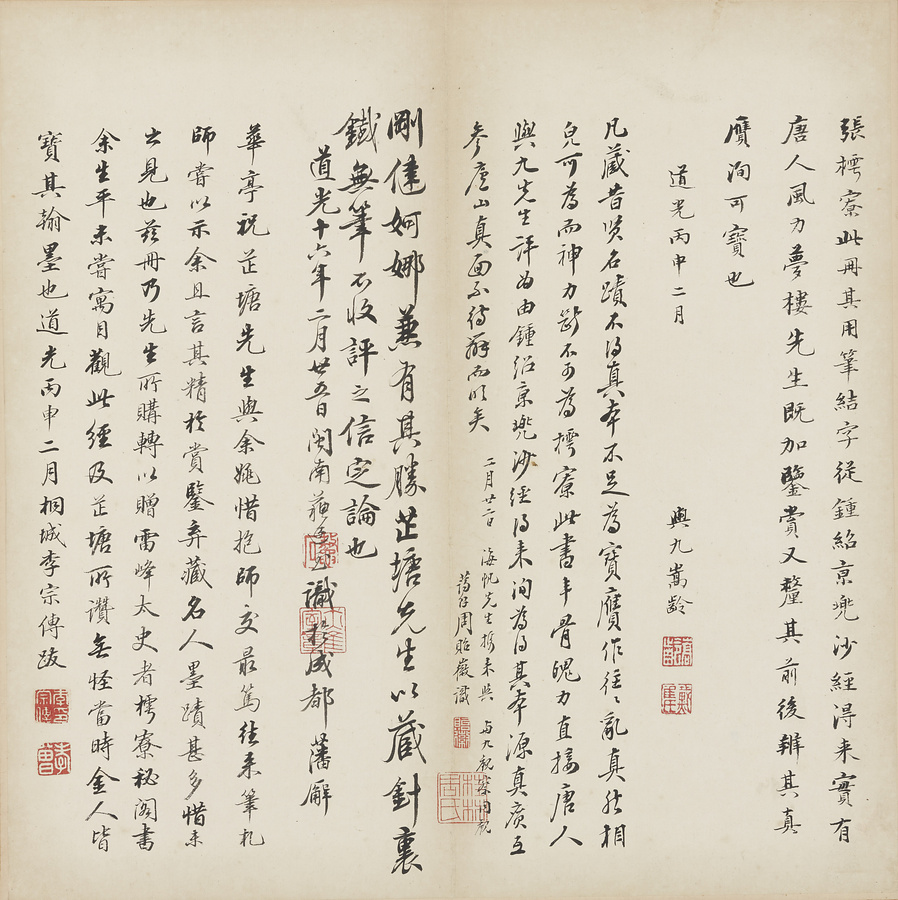 張樗寮此冊其用筆結字從鍾紹京兜沙經得来實有
唐人風力夢樓先生既加鑒賞又釐其前後辨其真
贋洵可寶也
道光丙申二月
輿九嵩齡
凡藏昔賢名蹟不得真本不足為寶贋作往往亂真然相
皃可為而神力斷不可為樗寮此書丰骨魄力直接唐人
與九先生評為由鍾紹京兜沙經得来洵為得其本源真廣互
參廬山真面不待辭而明矣
二月廿二日 海帆先生携来與 与九
周貽徽識
剛健婀娜兼有其勝芷塘先生以藏針裏
鐵無筆不收評之信定論也
道光十六年二月廿五日閩南蘇 識於成都藩廨
華亭祝芷塘先生與余姚惜抱師交最篤往来筆札
師嘗以示余且言其精於賞鑒弆藏名人墨蹟甚多惜未
之見也茲冊乃先生所購轉以贈雷峰太史者樗寮秘閣書
余生平未嘗寓目觀此經及芷塘所讚無怪當時金人皆
寶其翰墨也道光丙申二月桐城李宗傳跋